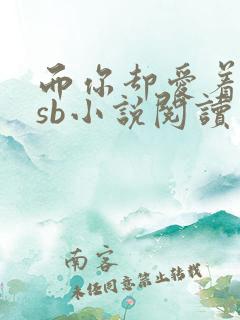 而你却爱着
sb小説閱讀
南客
未经同意禁止转载